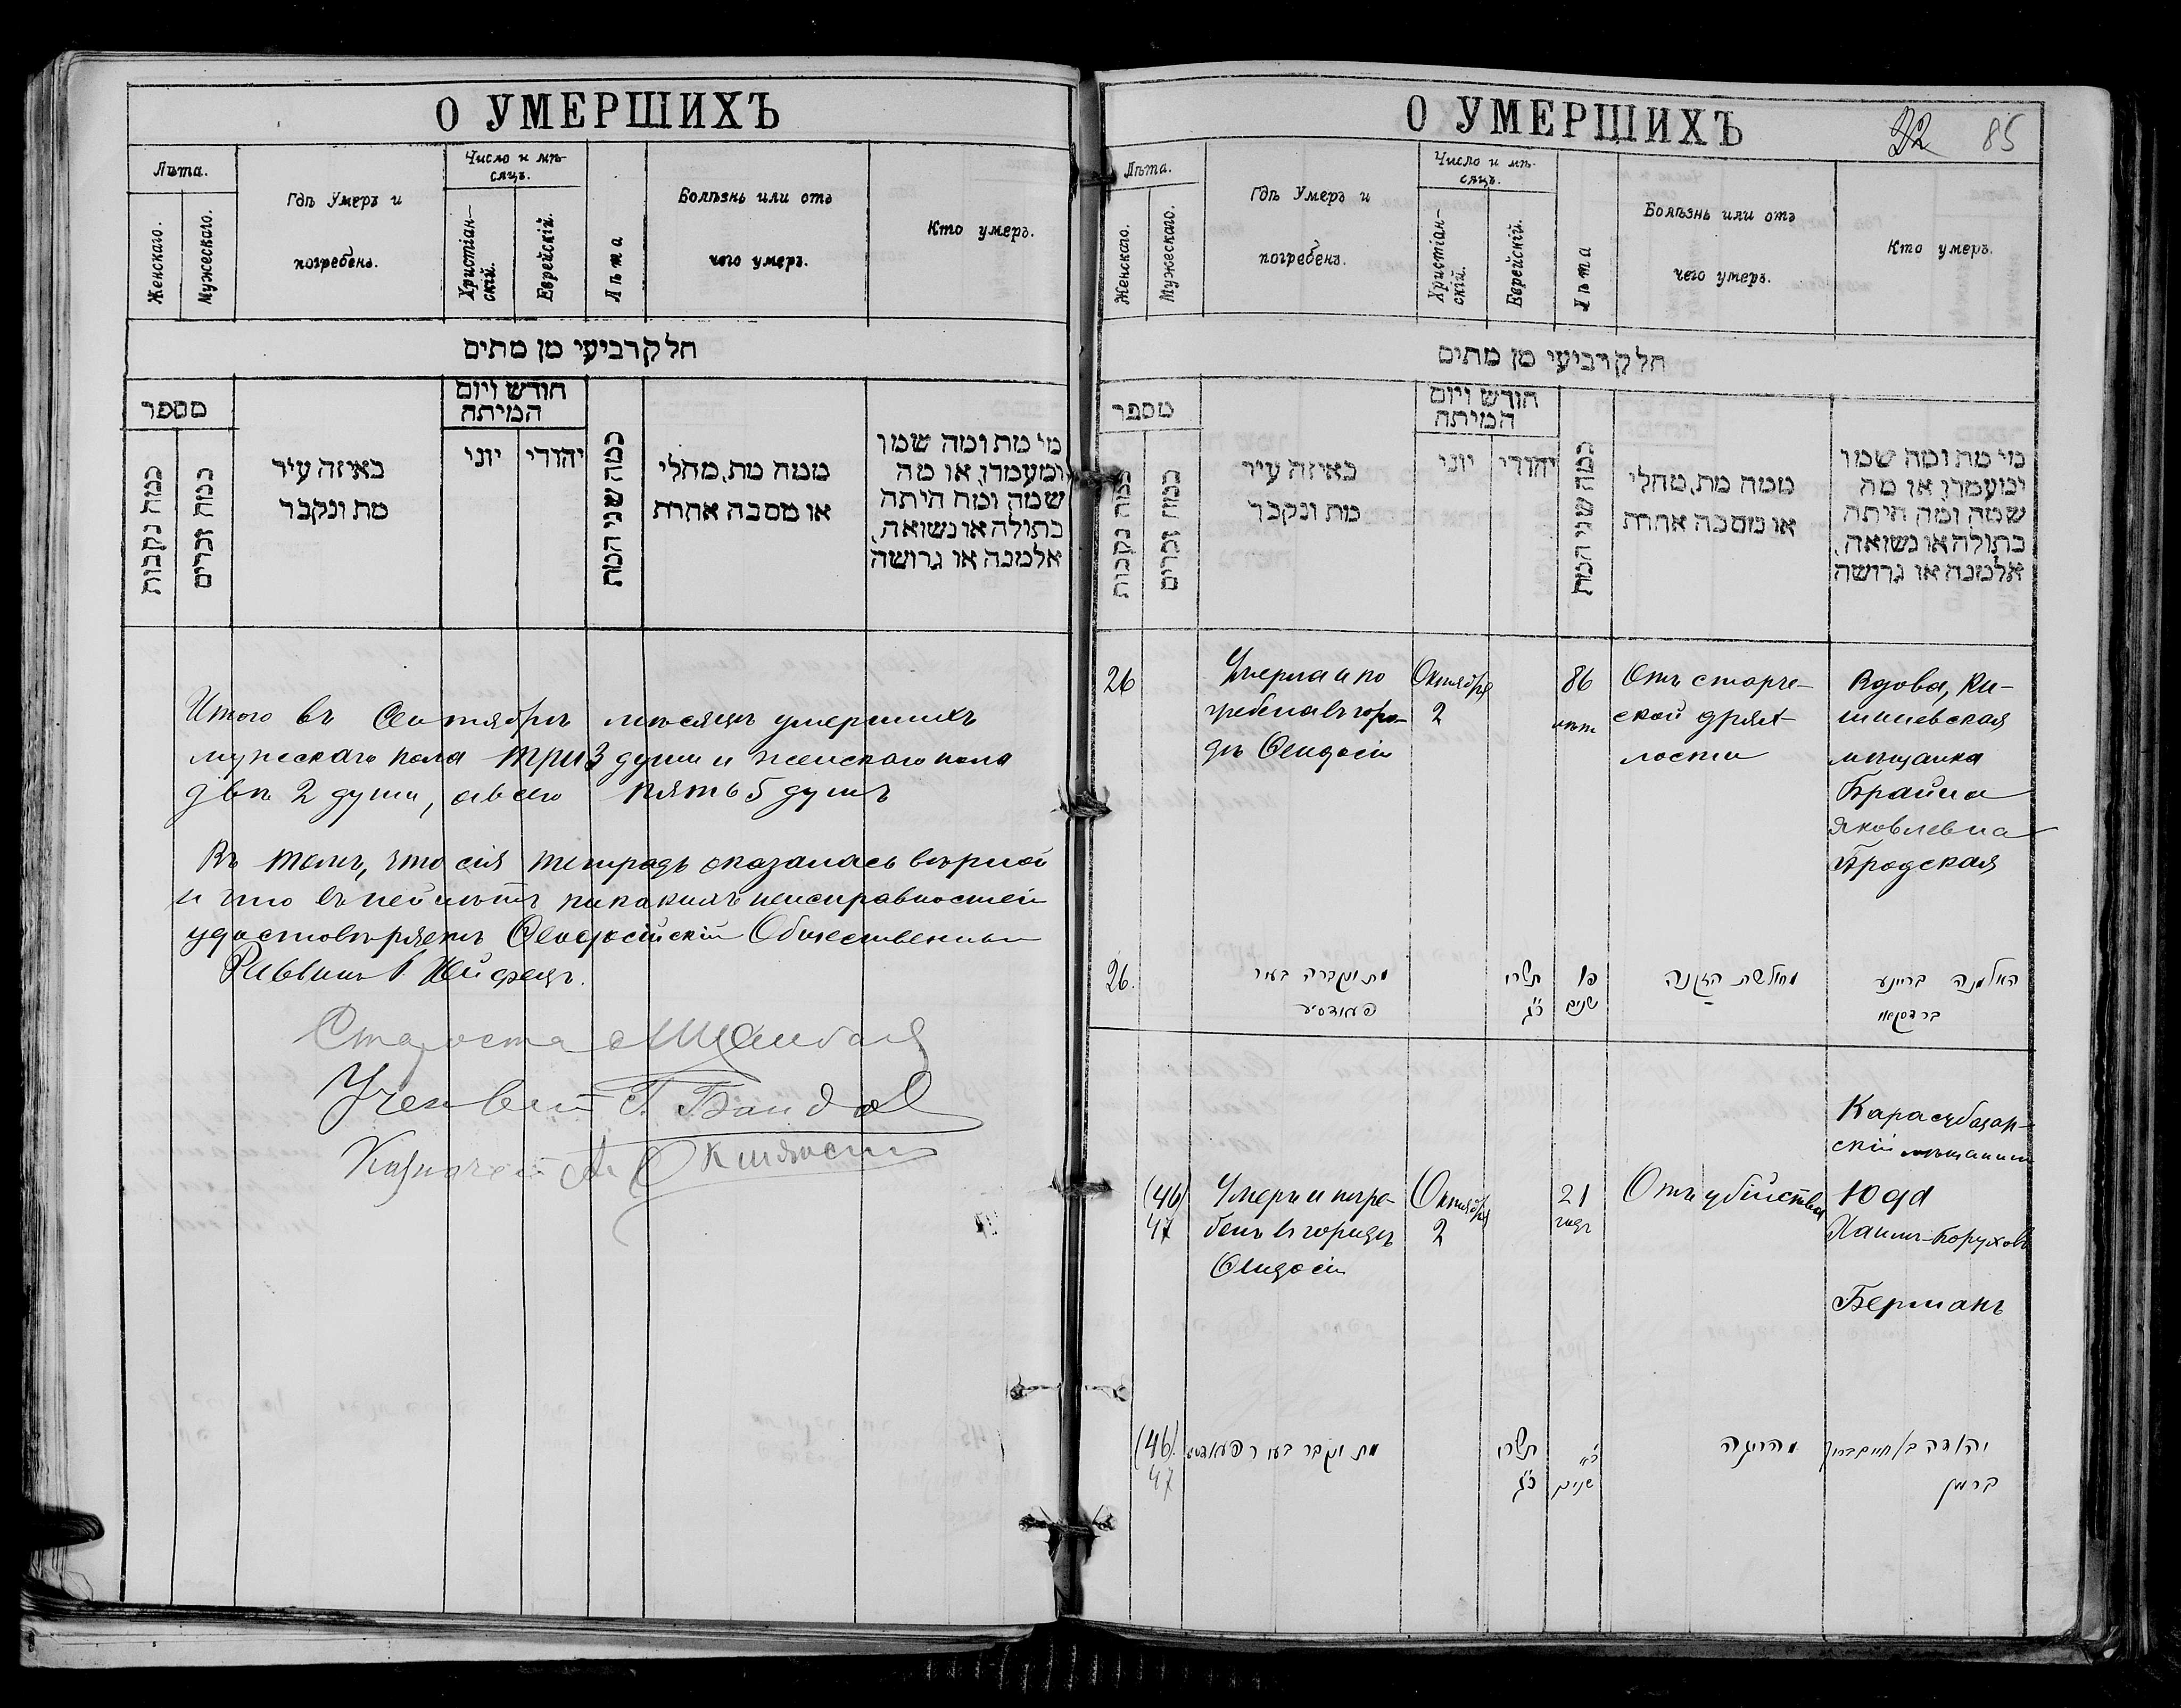 О УМЕРШИХЪ
Лѣта.
Женскаго.
Мужескаго.
Гдѣ Умеръ и
погребенъ.
Число и мѣ-
сяцъ.
Христіан-
скій.
Еврейскій.
Лѣта
Болѣзнь или отъ
чего умеръ.
Кто умеръ.
חלק רביעי מן מתים
מספר
כמה נקבות
כמה זכרים
באיזה עיר
מת ונקבר
חודש ויום
המיתה
יוני
יהודי
כמה שני המת
ממה מת, מחלי
או מסבה אחרת
מי מת ומה שמו
ומעמדו, או מה
שמה ומה היתה
בתולה או נשואה,
אלמנה או גרושה
Итого въ Сентябрѣ мѣсяцѣ умершихъ
мужескаго пола три 3 души и женскаго пола
двѣ 2 души, а всего пять 5 душъ
Въ томъ, что сія тетрадь оказалась вѣрной
и что въ ней нѣтъ никакихъ неисправностей
удостовѣряетъ Ѳеодосійскій Общественный
Раввинъ
Староста
Ученый Г.
Казначей
О УМЕРШИХЪ
32 85
Лѣта.
Женскаго.
Мужескаго.
Гдѣ Умеръ и
погребенъ.
Число и мѣ-
сяцъ.
Христіан-
скій.
Еврейскій.
Лѣта
Болѣзнь или отъ
чего умеръ.
Кто умеръ.
חלק רביעי מן מתים
מספר
כמה נקבות
כמה זכרים
באיזה עיר
מת ונקבר
חודש ויום
המיתה
יוני
יהודי
כמה שני המת
ממה מת, מחלי
או מסבה אחרת
מי מת ומה שמו
ומעמדו, או מה
שמה ומה היתה
בתולה או נשואה,
אלמנה או גרושה
26
Умерла и по
гребена въ горо-
дѣ Ѳеодосіи
Октября
2
86
лѣт
Отъ старче-
ской дрях-
лости
Вдова, Ки-
шиневская
мѣщанка
Брайна
Яковлевна
Бродская
26.
מת ונקברה בעיר
פעאדסיע
תשרי
כ״ג
פו
שנים
מחולשת הזקנה
האלמנה בריינע
(46)
47
Умеръ и погре-
бенъ въ городѣ
Ѳеодосіи
Октября
2
21
годъ
Отъ убійства
Карасубазар-
скій мѣщанинъ
Юда
Хаимъ-Боруховъ
Берманъ
(46).
47
מת ונקבר בעיר פעאדסיע
תשרי
כ״ג
כ״א
שנים
מהריגה
יהודה בן חיים ברוך
ברמן